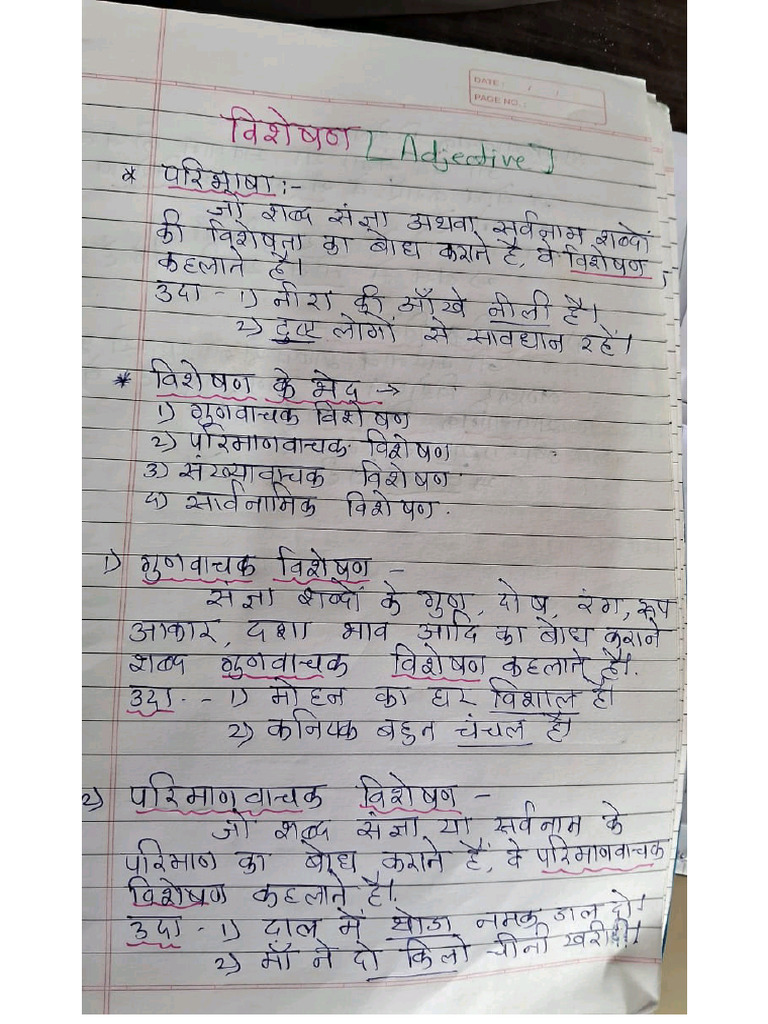 DATE : / /
PAGE NO. :
विशेषण [Adjective]
* परिभाषा :-
जो शब्द संज्ञा अथवा सर्वनाम शब्दों
की विशेषता का बोध कराते है, वे विशेषण
कहलाते है।
उदा - 1) नीरा की आँखे नीली है।
2) दुष्ट लोगों से सावधान रहें।
* विशेषण के भेद →
1) गुणवाचक विशेषण
2) परिमाणवाचक विशेषण
3) संख्यावाचक विशेषण
4) सार्वनामिक विशेषण.
1) गुणवाचक विशेषण -
संज्ञा शब्दों के गुण, दोष, रंग, रूप
आकार, दशा भाव आदि का बोध कराने
शब्द गुणवाचक विशेषण कहलाते है।
उदा. - 1) मोहन का घर विशाल है।
2) बहुत चंचल है।
2) परिमाणवाचक विशेषण -
जो शब्द संज्ञा या सर्वनाम के
परिमाण का बोध कराते हैं, वे परिमाणवाचक
विशेषण कहलाते है।
उदा - 1) दाल में थोडा नमक डाल दो।
2) माँ ने दो किलो चीनी खरीदी।